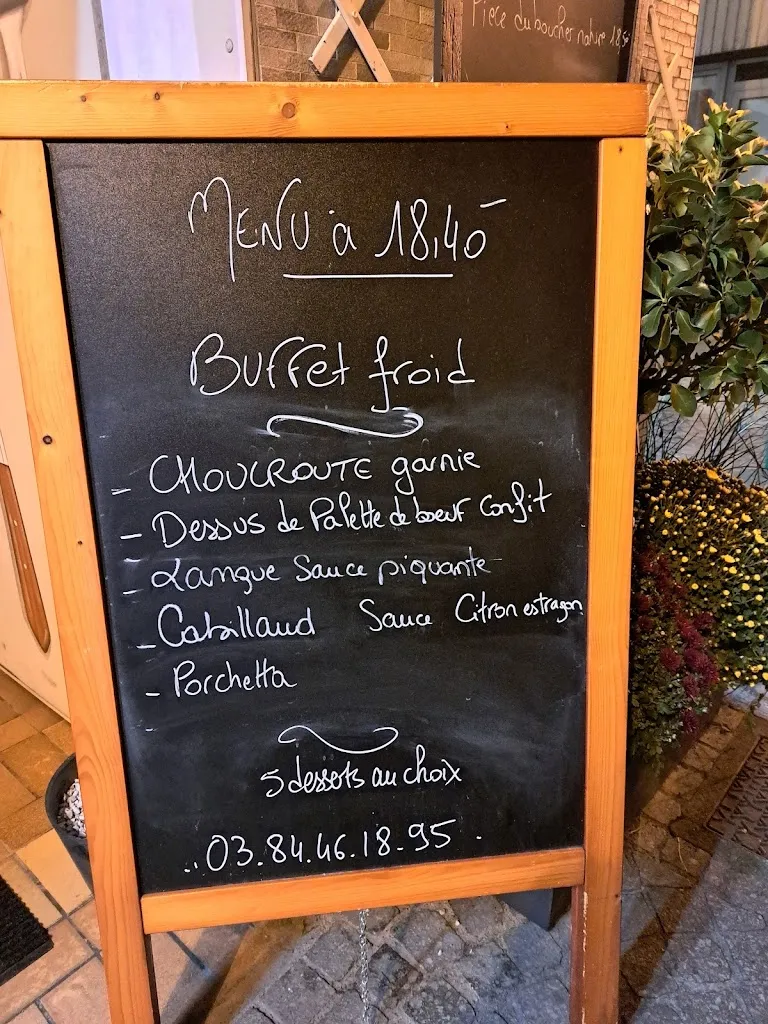 Pièce du boucher nature 18,50
MENU à 18,40
Buffet froid
- CHOUCROUTE garnie
- Dessus de Palette de boeuf confit
- Langue Sauce piquante
- Cabillaud Sauce Citron estragon
- Porchetta
5 desserts au choix
..03.84.46.18.95.